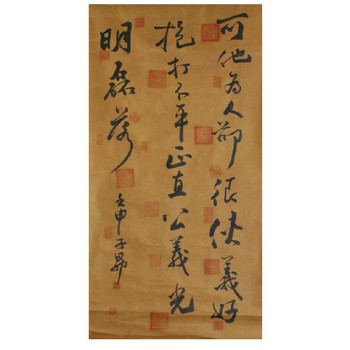 可他为人却很侠義好
抱打不平正直公義光
明磊落
壬申子昂